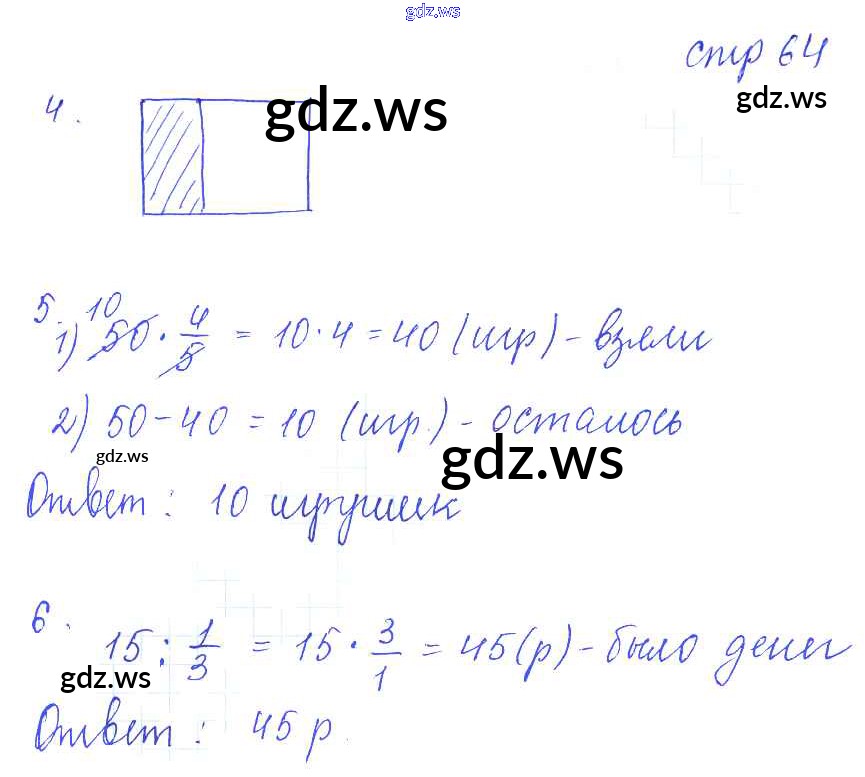 gdz.ws
стр 64
gdz.ws
4.
gdz.ws
5.
1) 50 · 4/5 = 10 · 4 = 40 (игр) - взяли
10
2) 50 - 40 = 10 (игр.) - осталось
gdz.ws
gdz.ws
Ответ: 10 игрушек
6.
15 : 1/3 = 15 · 3/1 = 45 (р) - было денег
gdz.ws
Ответ: 45 р.